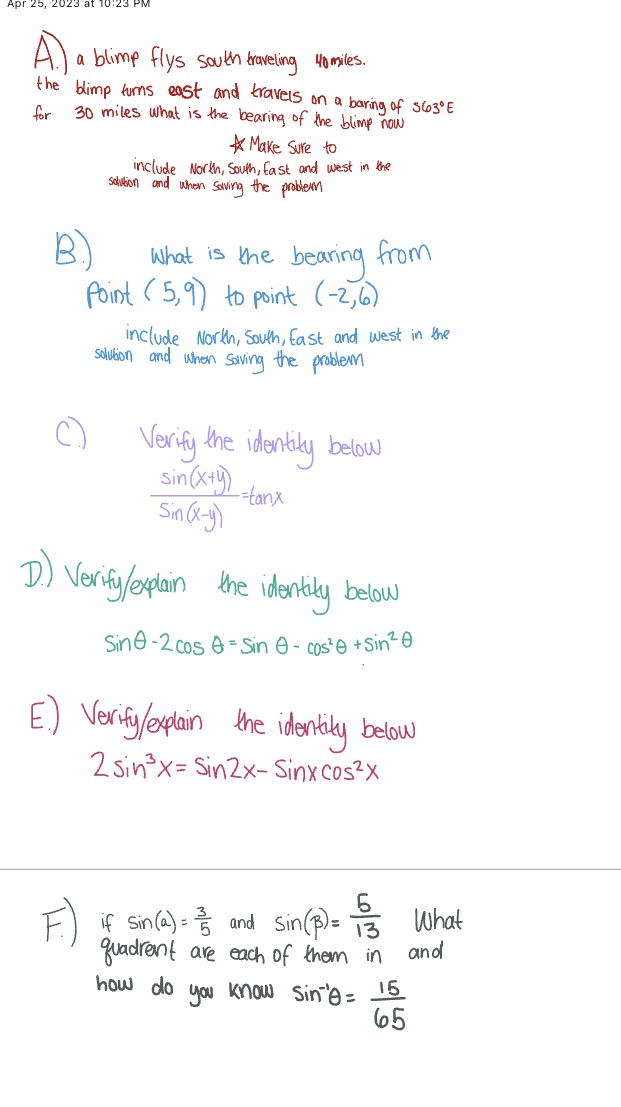 Apr 25, 2023 at 10:23 PM
A.) a blimp flys south traveling 40 miles.
the blimp turns east and travels on a baring of S63°E
for 30 miles what is the bearing of the blimp now
☆ Make Sure to
include North, South, East and west in the
solution and when solving the problem
B.) What is the bearing from
Point (5,9) to point (-2,6)
include North, South, East and west in the
solution and when solving the problem
C.) Verify the identity below
sin(x+y)
=tanx
Sin(x-y)
D.) Verify/explain the identity below
Sinθ-2cos θ = Sin θ - cos²θ +Sin²θ
E.) Verify/explain the identity below
2sin³x = Sin2x- Sinxcos²x
F.) if sin(a) = 3/5 and sin(β)= 5/13 What
quadrent are each of them in and
how do you know Sin⁻¹θ = 15/65